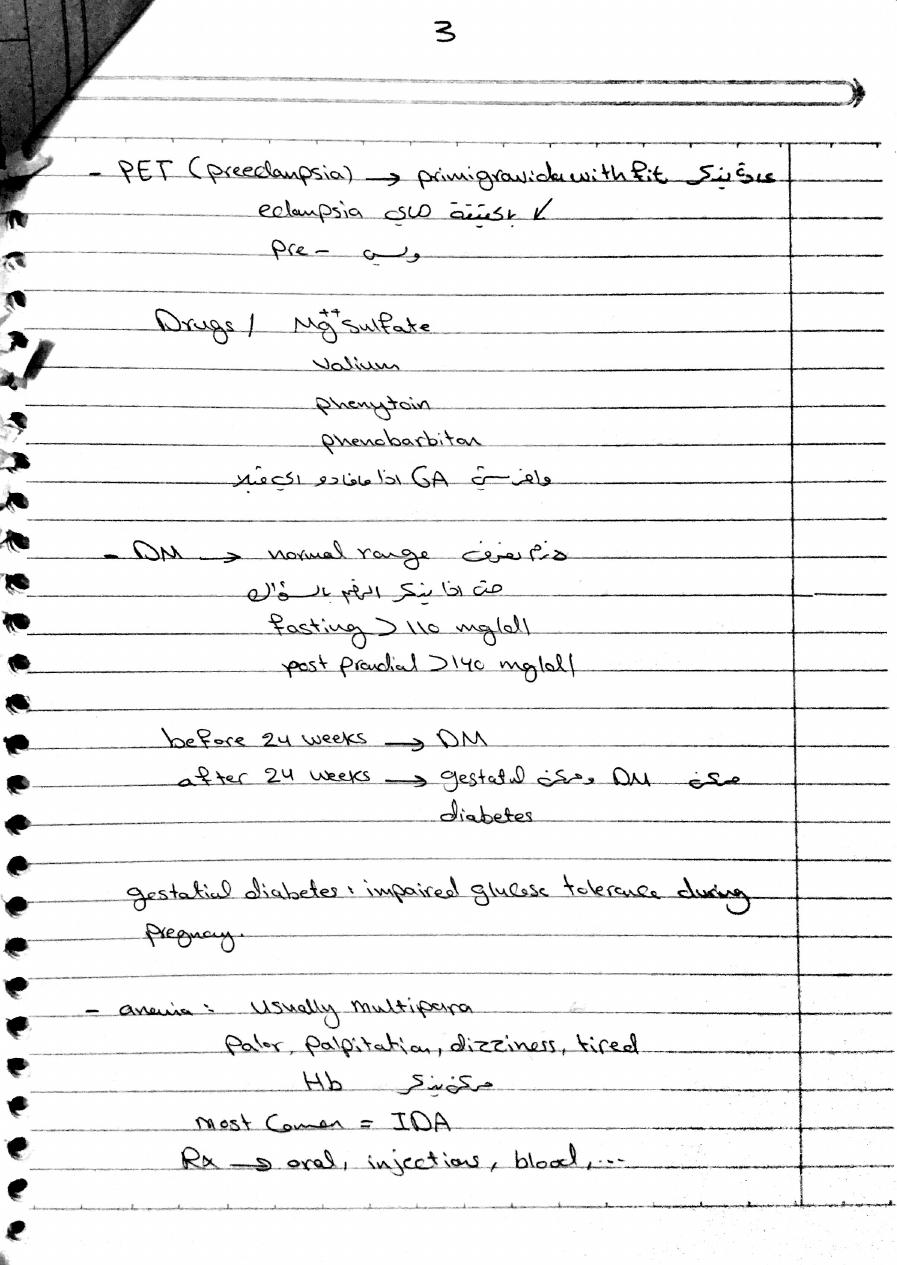 3
- PET (preeclampsia) → primigravida with fit عادة يذكر
eclampsia هاي
Pre - وليس
Drugs / Mg++ sulfate
Valium
phenytoin
phenobarbiton
GA اذا
- DM → normal range لازم نعرف
حتى اذا يذكر الرقم بالسؤال
fasting > 110 mg/dl
post prandial > 140 mg/dl
before 24 weeks → DM
after 24 weeks → ممكن DM وممكن gestatul
diabetes
gestatial diabetes : impaired glucose tolerence during
pregnacy.
- anemia : Usually multipara
Palor, Palpitation, dizziness, tired
ممكن يذكر Hb
most Comon = IDA
Rx → oral, injections, blood, ...